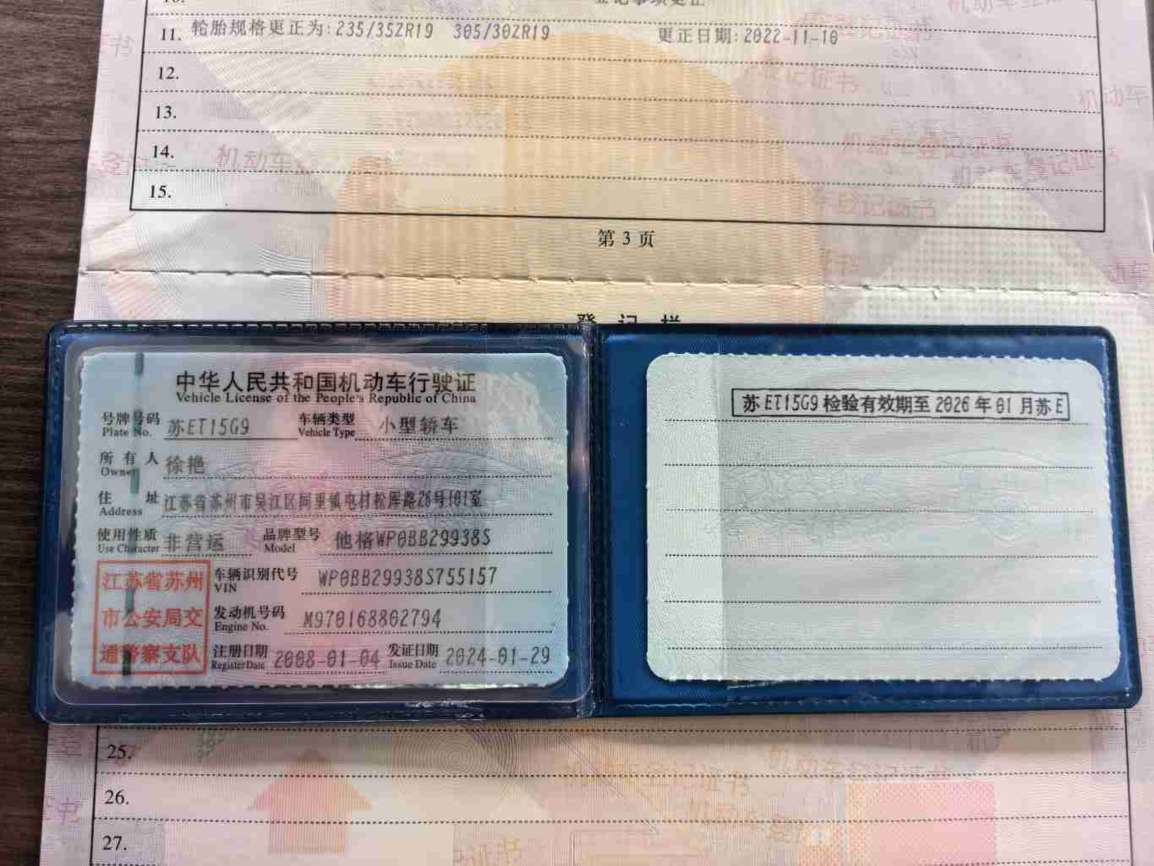 登记事项更正
11. 轮胎规格更正为:235/35ZR19 305/30ZR19 更正日期:2022-11-10
12.
13.
14.
15.
第 3 页
登 记 栏
中华人民共和国机动车行驶证
Vehicle License of the People's Republic of China
号牌号码 苏ET15G9 车辆类型 小型轿车
Plate No. Vehicle Type
所有人 徐艳
Owner
住 址 江苏省苏州市吴江区同里镇屯村松库路26号101室
Address
使用性质 非营运 品牌型号 他格WP0BB29938S
Use Character Model
江苏省苏州
市公安局交
通警察支队
车辆识别代号 WP0BB29938S755157
VIN
发动机号码 M970168802794
Engine No.
注册日期 2008-01-04 发证日期 2024-01-29
Register Date Issue Date
苏ET15G9检验有效期至2026年01月苏E
25.
26.
27.
机动车登记证书